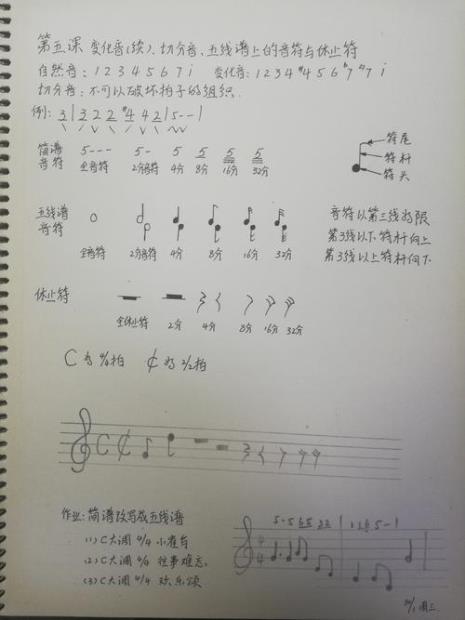 第五课 变化音(续)、切分音、五线谱上的音符与休止符
自然音: 1 2 3 4 5 6 7 i 变化音: 1 2 3 4 #4 5 6 b7 #7 i
切分音: 不可以破坏拍子的组织.
例: 3 | 3 2 2 #4 4 2 | 5 - - |
简谱音符 5--- 5- 5 5 5 5
全音符 2分音符 4分 8分 16分 32分
符尾
符杆
符头
五线谱音符
全音符 2分音符 4分 8分 16分 32分
音符以第三线为限
第3线以下符杆向上
第3线以上符杆向下
休止符
全休止符 2分 4分 8分 16分 32分
C为4/4拍 ¢为2/2拍
作业: 简谱改写成五线谱
(1) C大调 4/4 小雀与
(2) C大调 4/4 往事难忘.
(3) C大调 4/4 欢乐颂
周三